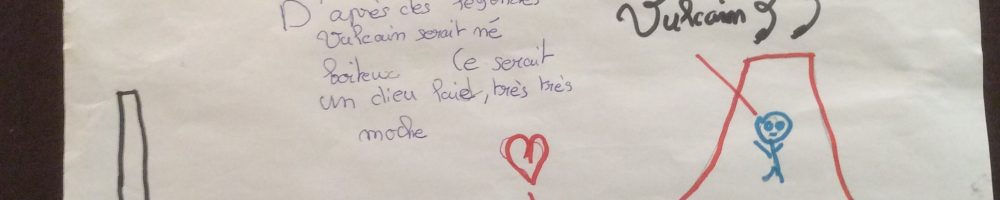 D'après des légendes
Vulcain serait né
boiteux Ce serait
un dieu laid, très très
moche
Vulcain